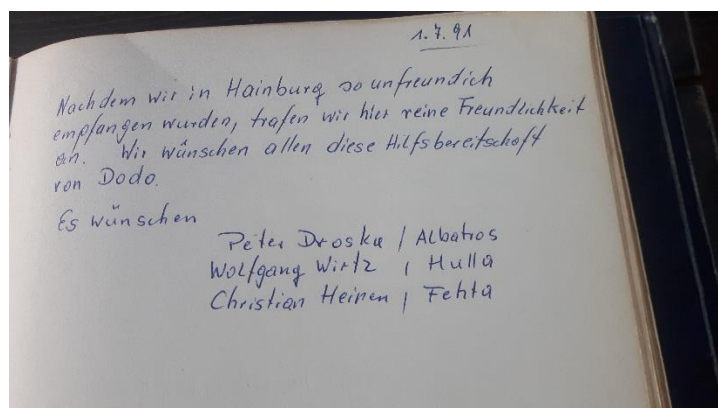 1.7.91
Nachdem wir in Hainburg so unfreundich
empfangen wurden, trafen wir hier reine Freundlichkeit
an. Wir wünschen allen diese Hilfsbereitschaft
von Dodo.
Es wünschen
Peter Droska / Albatros
Wolfgang Wirtz / Hulla
Christian Heinen / Fehta